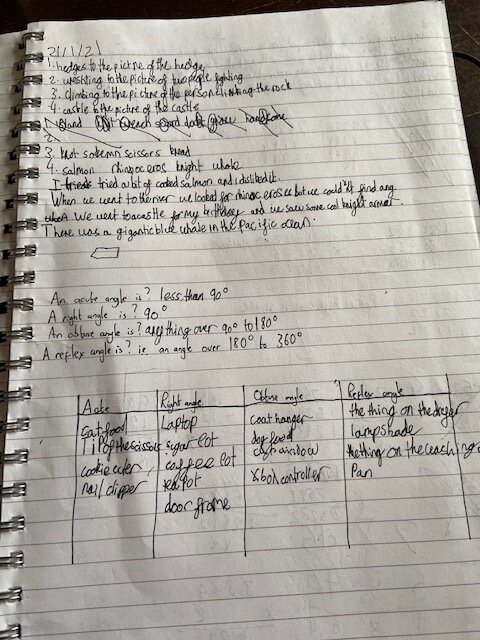 21/1/21
1. hedges to the picture of the hedge
2. westling to the picture of two people fighting
3. climbing to the picture of the person climbing the rock
4. castle to the picture of the castle
1. island
2.
3. knot solemn scissors bread
4. salmon rhinoceros knight whale
I tried a bit of cooked salmon and i disliked it.
When we went to the river we looked for rhinoceroses but we could'nt find any
We went to a castle for my birthday and we saw some cool knight armor.
There was a gigantic blue whale in the Pacific ocean.
An acute angle is? less than 90°
A right angle is? 90°
An obtuse angle is? anything over 90° to 180°
A reflex angle is? ie. an angle over 180° to 360°
Acute Right angle Obtuse angle Reflex angle
cat food Laptop coat hanger the thing on the dryer
tip of the scissors sugar Pot dog food lampshade
cookie cuter coffee Pot window the thing on the washing
nail clipper tea Pot Xbox controller Pan
door frame